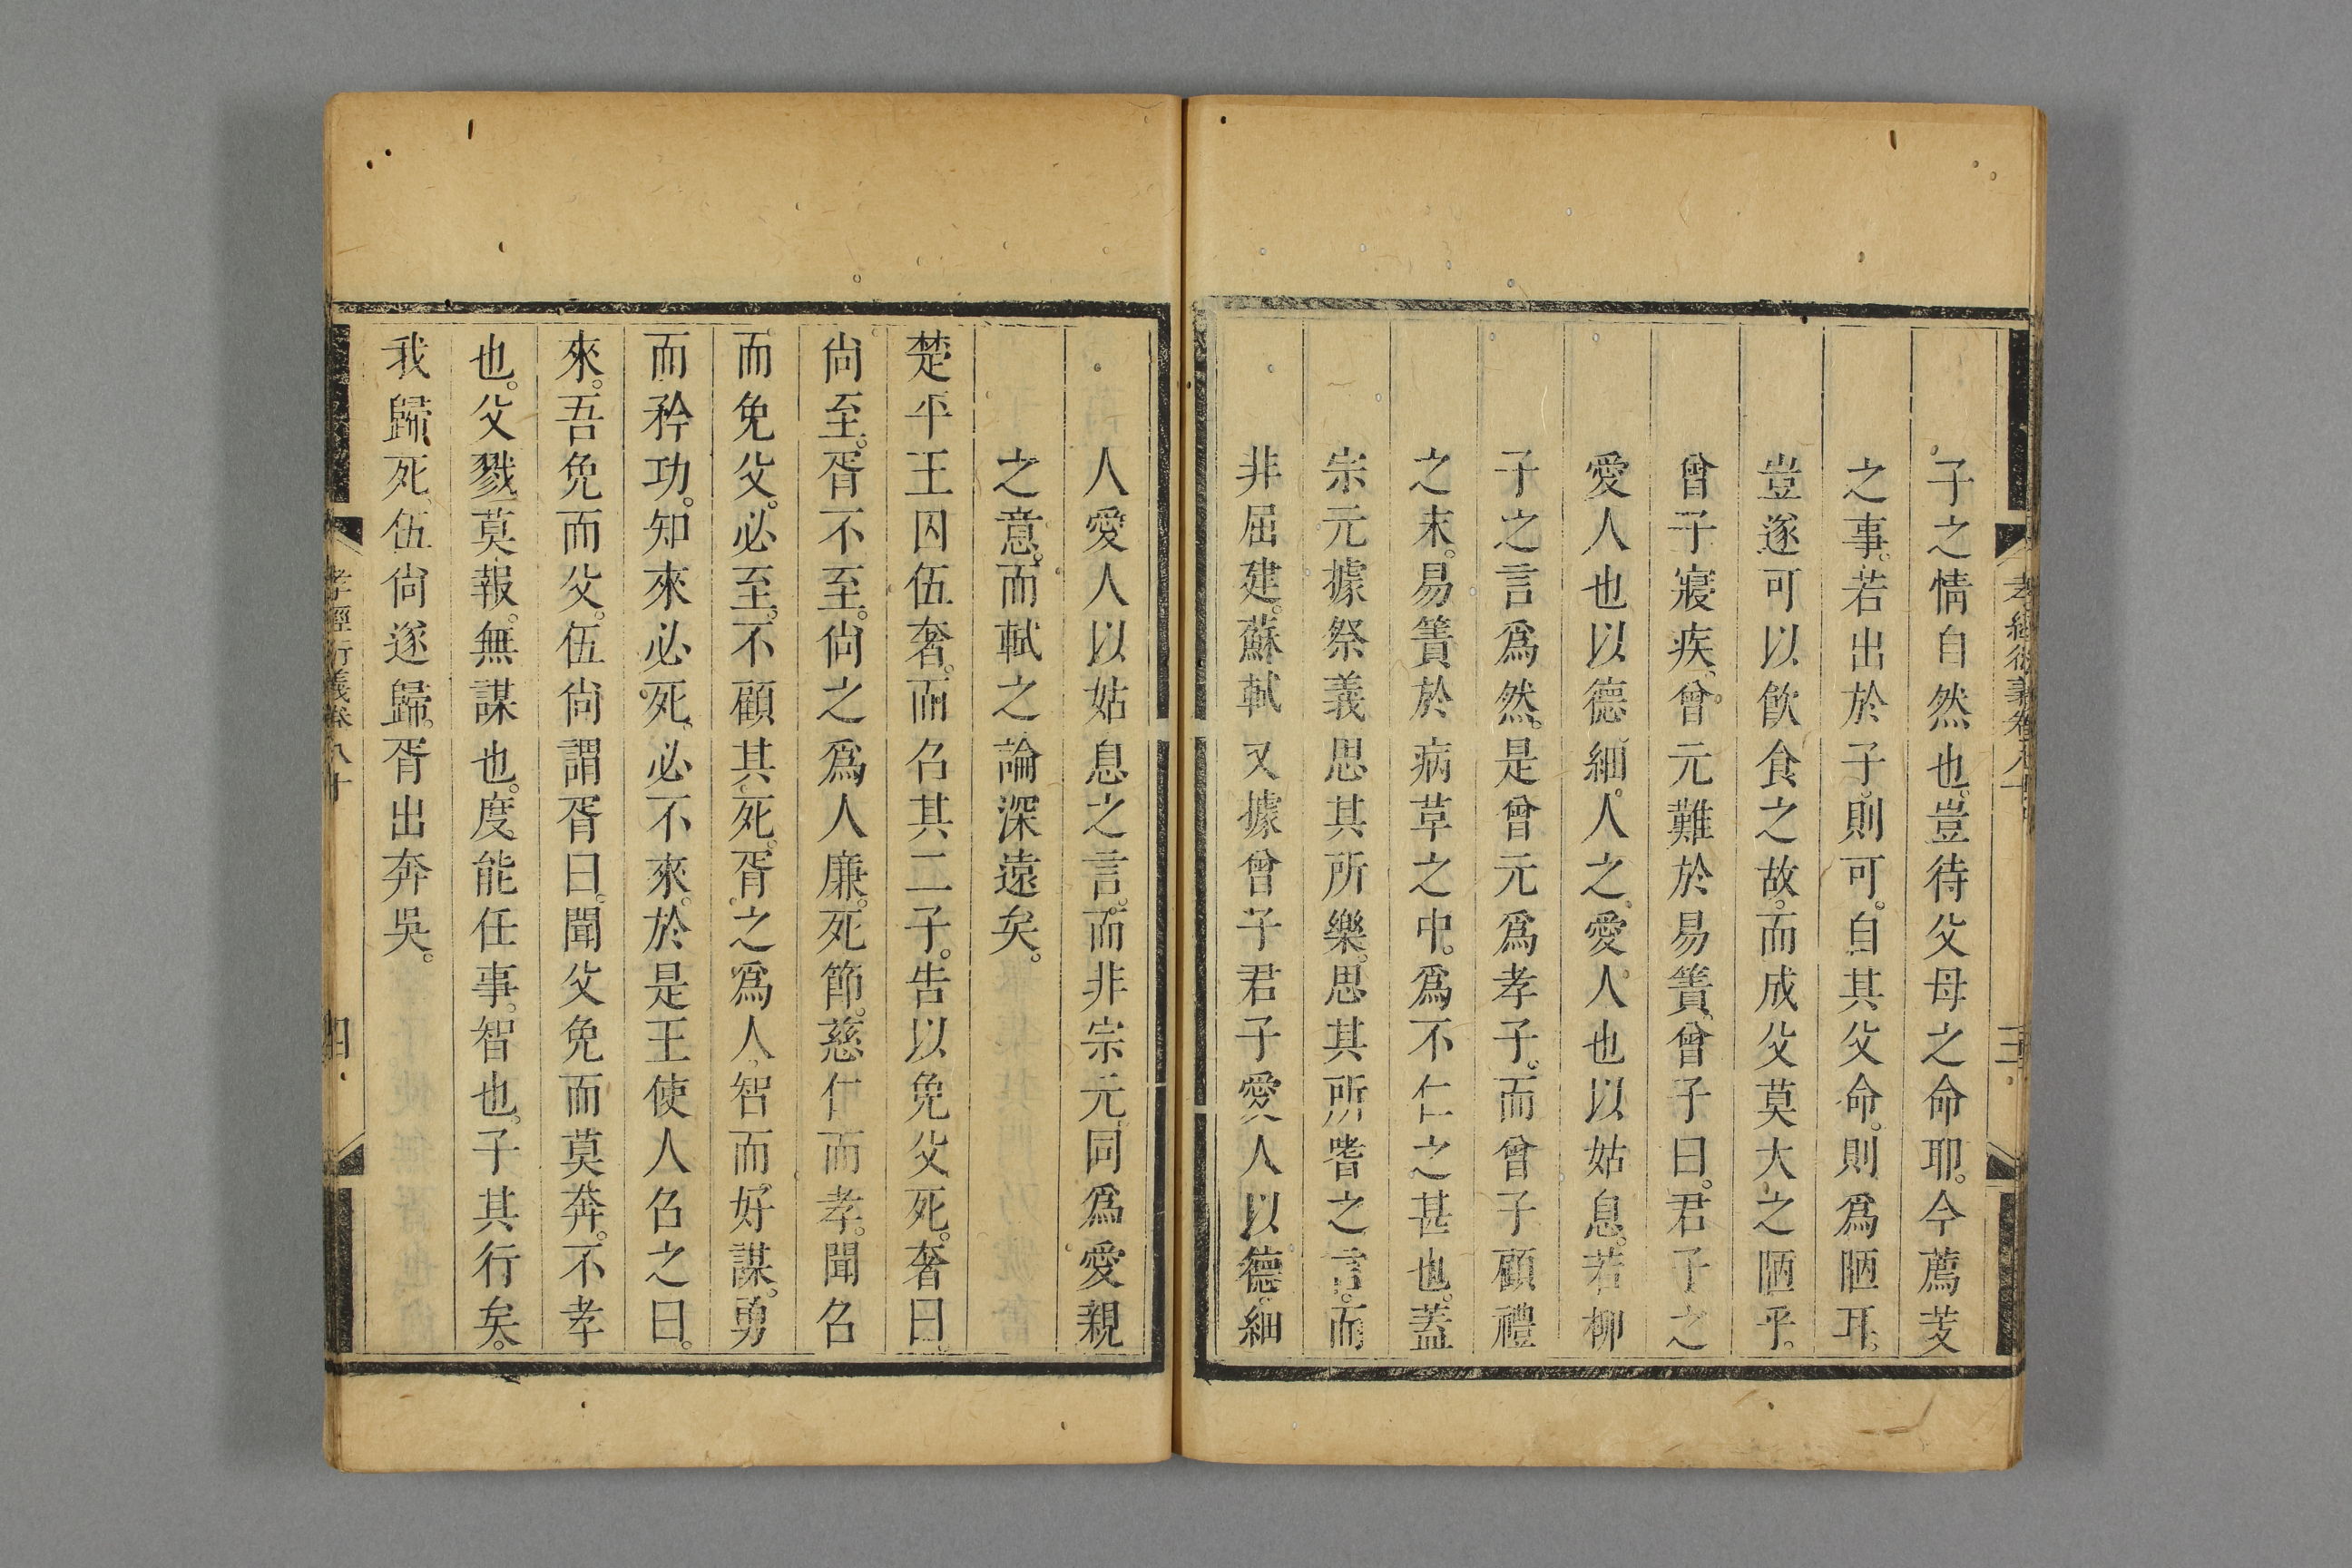 孝經衍義卷八十
三
子之情自然也。豈待父母之命耶。今薦芰
之事。若出於子。則可。自其父命。則爲陋耳。
豈遂可以飮食之故。而成父莫大之陋乎。
曾子寢疾。曾元難於易簀。曾子曰。君子之
愛人也以德。細人之愛人也以姑息。若柳
子之言爲然。是曾元爲孝子。而曾子顧禮
之末。易簀於病草之中。爲不仁之甚也。蓋
宗元據祭義思其所樂。思其所嗜之言。而
非屈建。蘇軾又據曾子君子愛人以德。細
人愛人以姑息之言。而非宗元。同爲愛親
之意。而軾之論深遠矣。
楚平王囚伍奢。而召其二子。告以免父死。奢曰。
尙至。胥不至。尙之爲人廉。死節。慈仁而孝。聞召
而免父。必至。不顧其死。胥之爲人。智而好謀。勇
而矜功。知來必死。必不來。於是王使人召之曰。
來。吾免而父。伍尙謂胥曰。聞父免而莫奔。不孝
也。父戮莫報。無謀也。度能任事。智也。子其行矣。
我歸死。伍尙遂歸。胥出奔吳。
孝經衍義卷八十
四